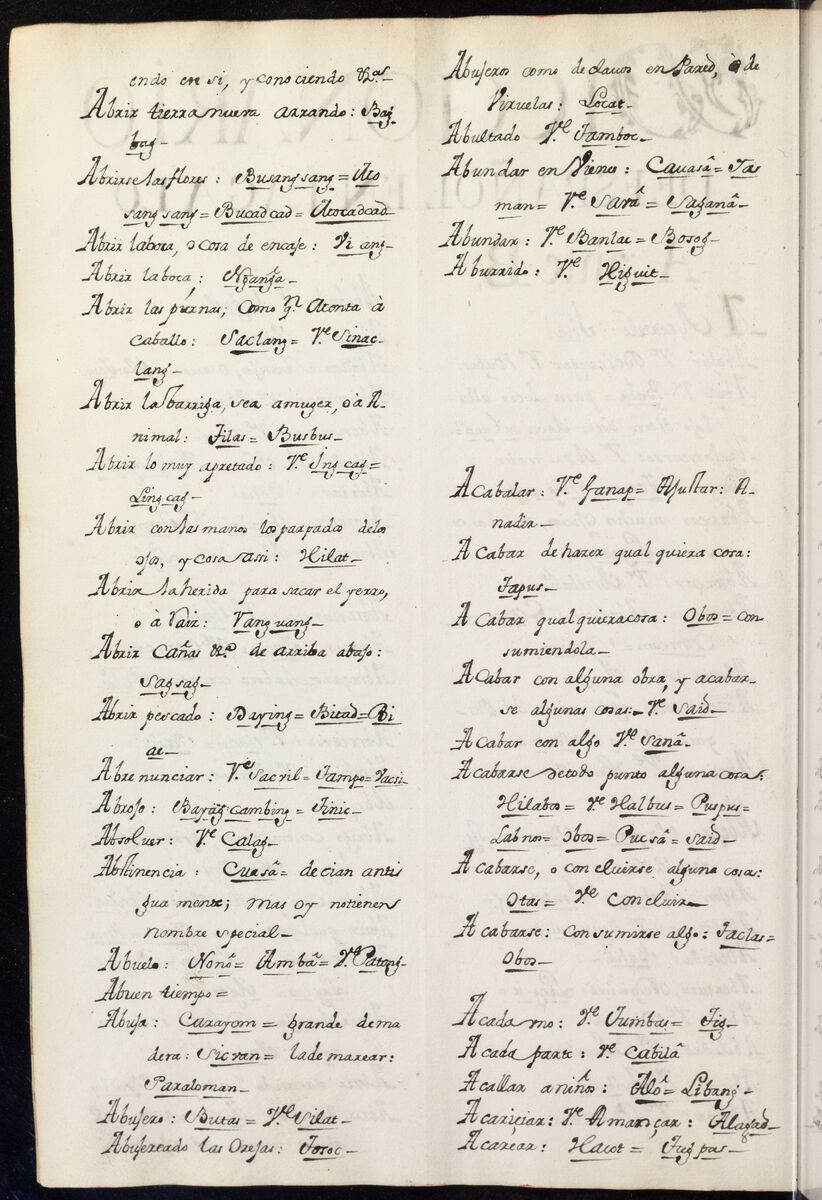 endo en si, y conociendo &c.as
Abrir tierra nueva arrando: Bag
bag_
Abrirse las flores: Busangsang = Ato
sangsang = Bucadcad = Atocadcad
Abrir la boca, o cosa de encaje: Vi ang_
Abrir la boca: Nganga_
Abrir las piernas; como qn. Monta à
caballo: Saclang = Ve. Sinac-
lang_
Abrir la barriga, sea amuger, ò à A-
nimal: Tilas = Busbus_
Abrir lo muy apretado: Ve. Ingcag =
Lingcag_
Abrir con las manos los parpados delos
ojos, y cosa assi: Hilat_
Abrir la herida para sacar el yerro,
o à raiz: Vang uang_
Abrir Cañas &a. de arriba abajo:
Sagsag_
Abrir pescado: Daying = Bitad = Bi
ac_
Abrenunciar: Ve. Sacril = Tampo = Vacsi_
Abrojo: Bayãg cambing = Tinic_
Absolver: Ve. Calag_
Abstinencia: Cuasâ = decian anti
gua mente; mas oy notienen
nombre special_
Abuelo: Nonô = Ambâ = Ve. Patong_
Abuen tiempo =
Abuja: Carayom = grande dema
dera: Sicvan = lade marear:
Paraloman_
Abujero: Butas = Ve. Silat_
Abujereado las Orejas: Toroc_
Abujeros como de clavos en Pared, ò de
Viruelas: Locat_
Abultado Ve. Tamboc_
Abundar en Vienes: Cauasâ = Tas
man = Ve. Sarâ = Saganâ_
Abundar: Ve. Banlac = Bosog_
Aburrido: Ve. Higuit_
Acabalar: Ve. Ganap = Ajustar: A-
nadir_
Acabar de hazer qual quiera cosa:
Tapus_
Acabar qualquiera cosa: Obos = con
sumiendola_
Acabar con alguna obra, y acabar-
se algunas cosas: Ve. Said_
Acabar con algo Ve. Sanâ_
Acabarse detodo punto alguna cosa:
Hilabos = Ve. Halbus = Puspus =
Labnos = Obos = Pucsâ = Said_
Acabarse, o concluirse alguna cosa:
Otas = Ve. Concluir_
Acabarse: consumirse algo: Taclas =
Obos_
Acada uno: Ve. Tumbas = Tig_
Acada parte: Ve. Cabilâ
Acallar a niños: Alô = Libang_
Acariçiar: Ve. Amançar: Alagad_
Acarear: Hacot = Tugpas_